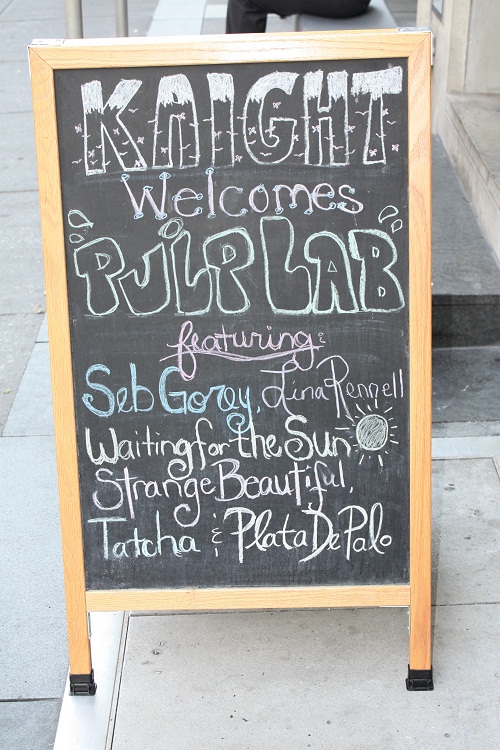 KAIGHT
Welcomes
PULP LAB
featuring:
Seb Gorey, Lina Rennell
Waiting for the Sun
Strange Beautiful,
Tatcha & Plata De Palo